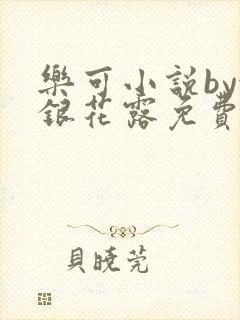 樂可小説by
銀花露免費
貝曉莞